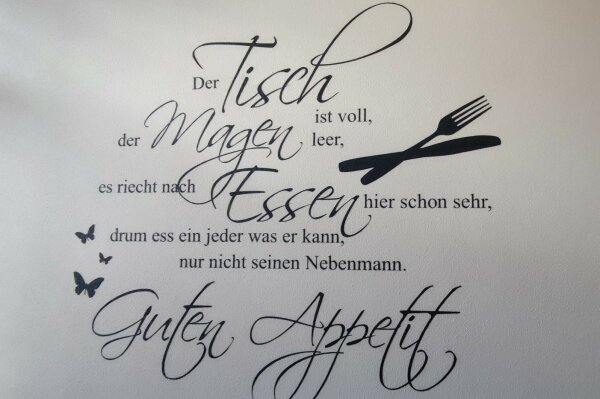 Der Tisch ist voll,
der Magen leer,
es riecht nach Essen hier schon sehr,
drum ess ein jeder was er kann,
nur nicht seinen Nebenmann.
Guten Appetit